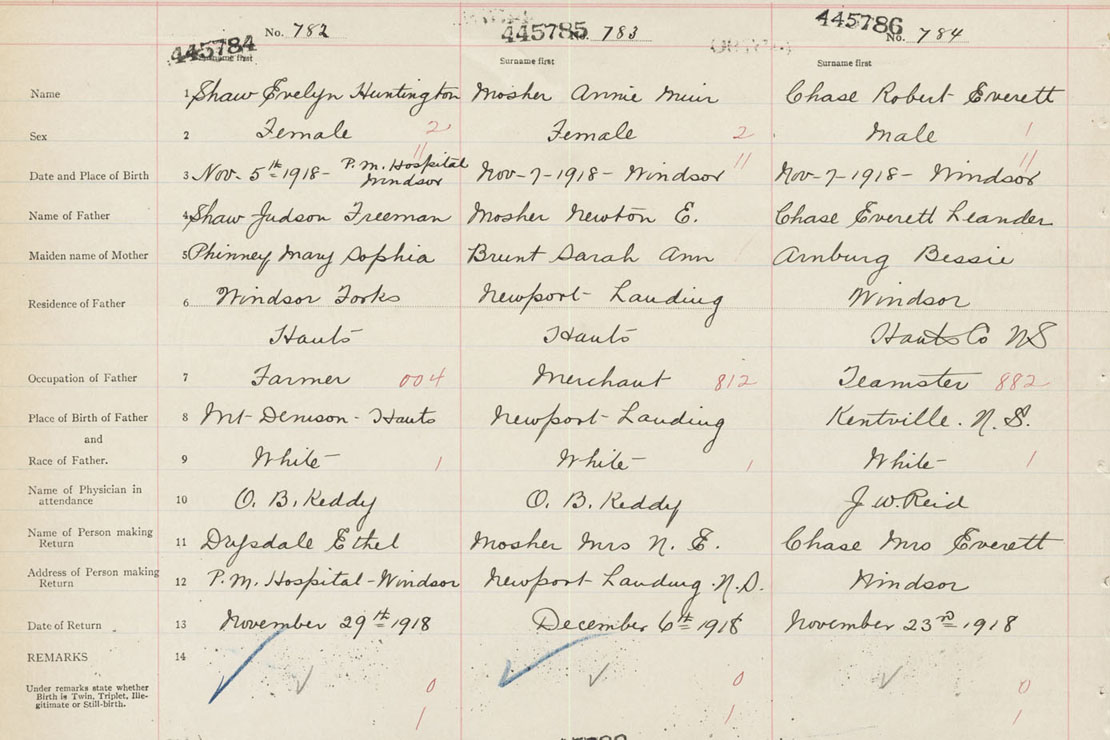 445784 No. 782 445785 No. 783 445786 No. 784
Surname first Surname first Surname first
Name 1 Shaw Evelyn Huntington Mosher Annie Muir Chase Robert Everett
Sex 2 Female 2 Female 2 Male 1
Date and Place of Birth 3 Nov. 5th 1918 - P.M. Hospital Windsor 11 Nov - 7 - 1918 - Windsor 11 Nov - 7 - 1918 - Windsor 11
Name of Father 4 Shaw Judson Freeman Mosher Newton E. Chase Everett Leander
Maiden name of Mother 5 Phinney Mary Sophia Brunt Sarah Ann Arnburg Bessie
Residence of Father 6 Windsor Forks Newport Landing Windsor
Hants Hants Hants Co NS
Occupation of Father 7 Farmer 004 Merchant 812 Teamster 882
Place of Birth of Father 8 Mt Denson - Hants Newport Landing Kentville. N.S.
and
Race of Father. 9 White 1 White 1 White 1
Name of Physician in
attendance 10 O. B. Keddy O. B. Keddy J. W. Reid
Name of Person making
Return 11 Drysdale Ethel Mosher Mrs N. E. Chase Mrs Everett
Address of Person making
Return 12 P.M. Hospital - Windsor Newport Landing. N.S. Windsor
Date of Return 13 November 29th 1918 December 6th 1918 November 23rd 1918
REMARKS 14
Under remarks state whether
Birth is Twin, Triplet, Ille-
gitimate or Still-birth.
0 0 0
1 1 1